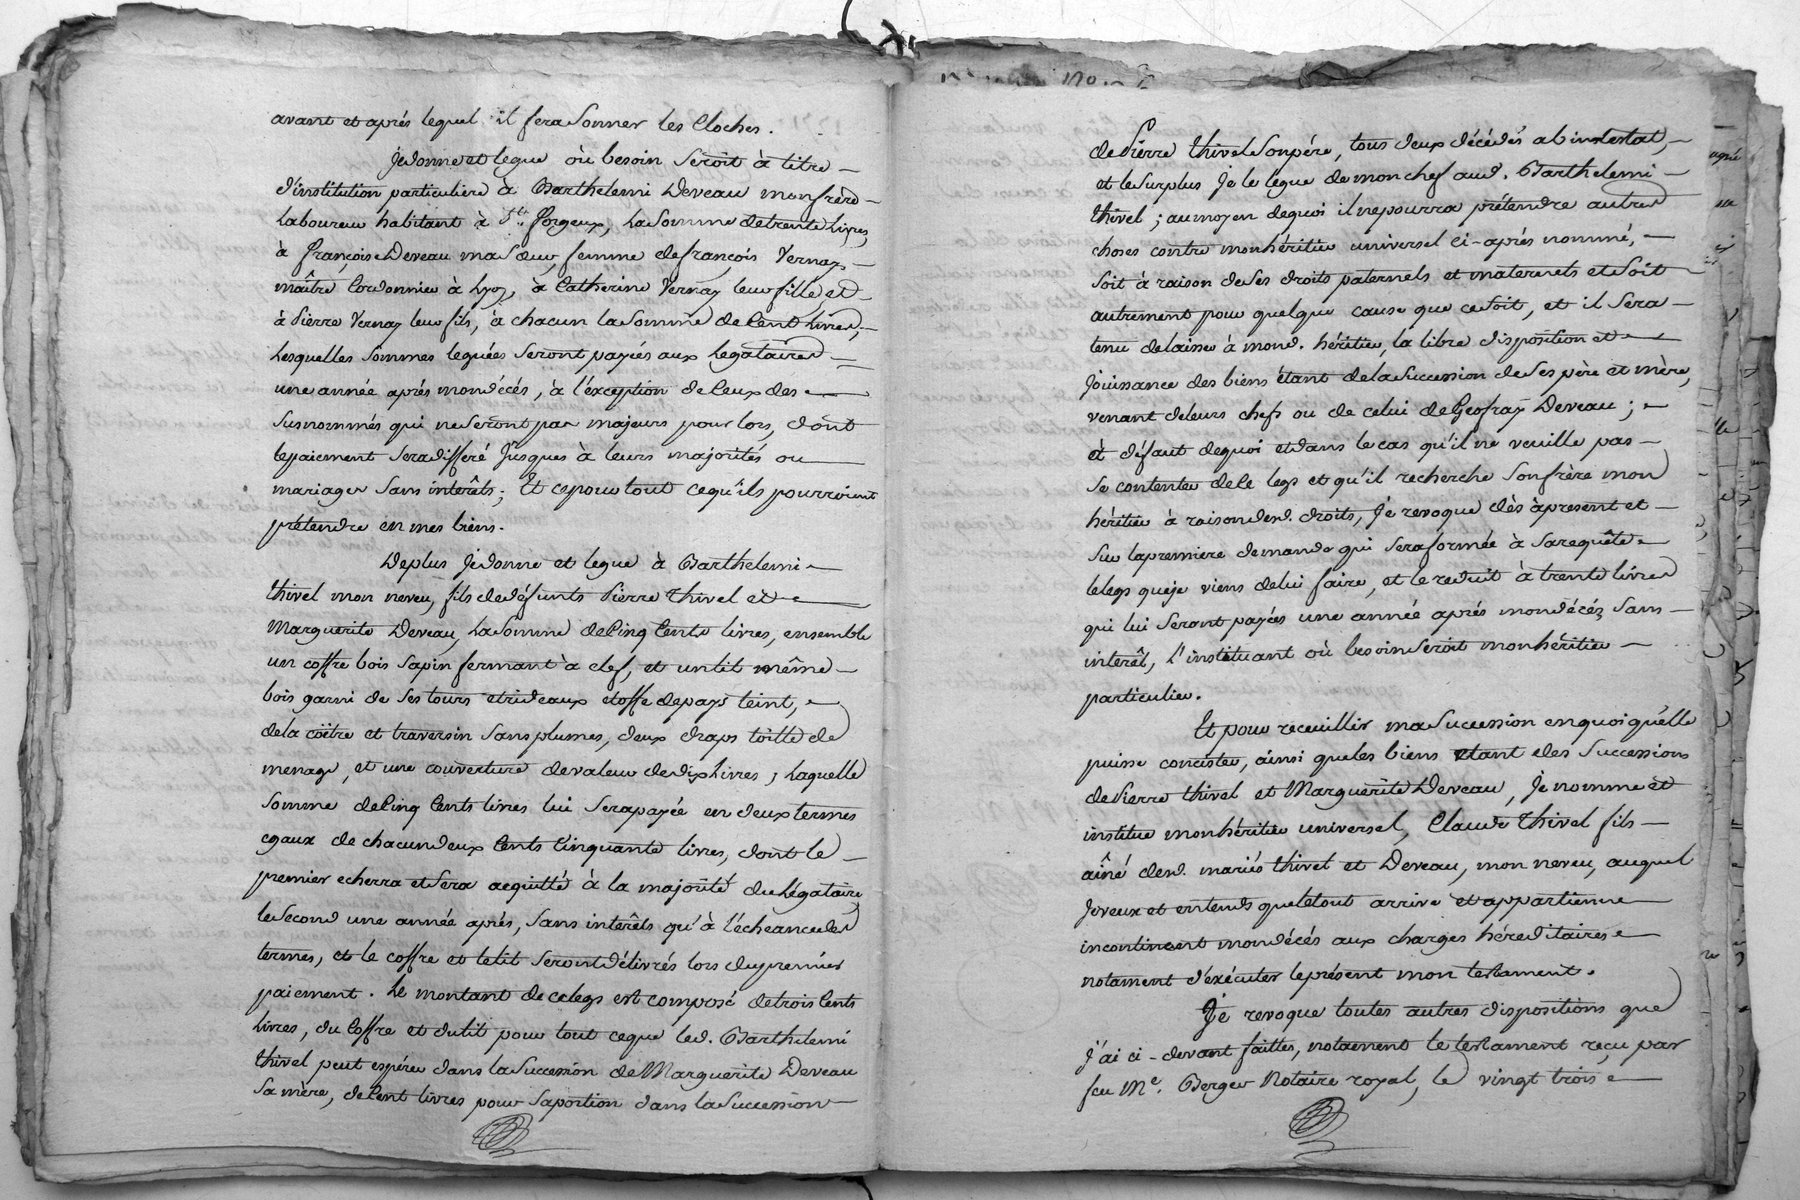 avant et aprés lequel il fera Sonner les Cloches.
Je donne et legue où besoin Seroit à titre
d'institution particuliere à Barthelemi Deveau mon frère
Laboureur habitant à St. Forgeux, La Somme de trente Livres,
à françoise Deveau ma Sœur, femme de francois Vernay
maître Cordonnier à Lyon, à Catherine Vernay leur fille, et
à Pierre Vernay leur fils, à chacun la Somme de Cent Livres,
Lesquelles Sommes leguées Seront payées aux Legataires
une année aprés mon décés, à l'exception de Ceux des
Susnommés qui ne Seront pas majeurs pour lors, dont
le paiement Sera differé Jusques à leurs majorités ou
mariages Sans intérêts; Et ce pour tout ce qu'ils pourroient
prétendre en mes biens.
Deplus Je donne et legue à Barthelemi
thivel mon neveu, fils de défunts Pierre thivel et
Marguerite Deveau, La Somme de Cinq Cents livres, ensemble
un coffre bois Sapin fermant à clef, et un lit même
bois garni de Ses tours et rideaux etoffe de pays teint,
de la coëtre et traversin Sans plumes, deux draps toille de
menage, et une couverture de valeur de dix Livres; Laquelle
Somme de Cinq Cents livres lui Sera payée en deux termes
egaux de chacun deux Cents Cinquante livres, dont le
premier echerra et Sera acquitté à la majorité du Légataire
le Second une année aprés, Sans intérêts qu'à l'écheance des
termes, et le coffre et le lit Seront délivrés lors du premier
paiement. Le montant de ce legs est composé de trois Cents
Livres, du Coffre et du lit pour tout ce que led. Barthelemi
thivel peut espérer dans la Succession de Marguerite Deveau
Sa mère, de Cent livres pour Sa portion dans la Succession
de Pierre thivel Son père, tous deux décédés ab intestat,
et le Surplus Je le legue de mon chef aud. Barthelemi
thivel; au moyen de quoi il ne pourra prétendre autres
choses contre mon héritier universel ci-aprés nommé,
Soit à raison de Ses droits paternels et maternels et Soit
autrement pour quelque cause que ce Soit, et il Sera
tenu de laisser à mond. héritier, la libre disposition et
Jouissance des biens étant de la Succession de Ses père et mère,
venant de leurs chefs ou de celui de Geofray Deveau;
et défaut de quoi et dans le cas qu'il ne veuille pas
Se contenter de Ce legs et qu'il recherche Son frère mon
héritier à raison desd. droits, Je revoque dès à present et
Sur la premiere demande qui Sera formée à Sa requête
le legs que je viens de lui faire, et le reduit à trente livres
qui lui Seront payées une année aprés mon décés Sans
interêt, l'instituant où besoin Seroit mon héritier
particulier.
Et pour receuillir ma Succession en quoi qu'elle
puisse concister, ainsi que les biens etant des Successions
de Pierre thivel et Marguerite Deveau, Je nomme et
institue mon héritier universel, Claude thivel fils
aîné desd. mariés thivel et Deveau, mon neveu, auquel
Je veux et entends que le tout arrive et appartienne
incontinent mon décés aux charges héreditaires
notament d'exécuter le présent mon testament.
Je revoque toutes autres dispositions que
J'ai ci-devant faittes, notament le testament reçu par
feu Me. Berger Notaire royal, le vingt trois